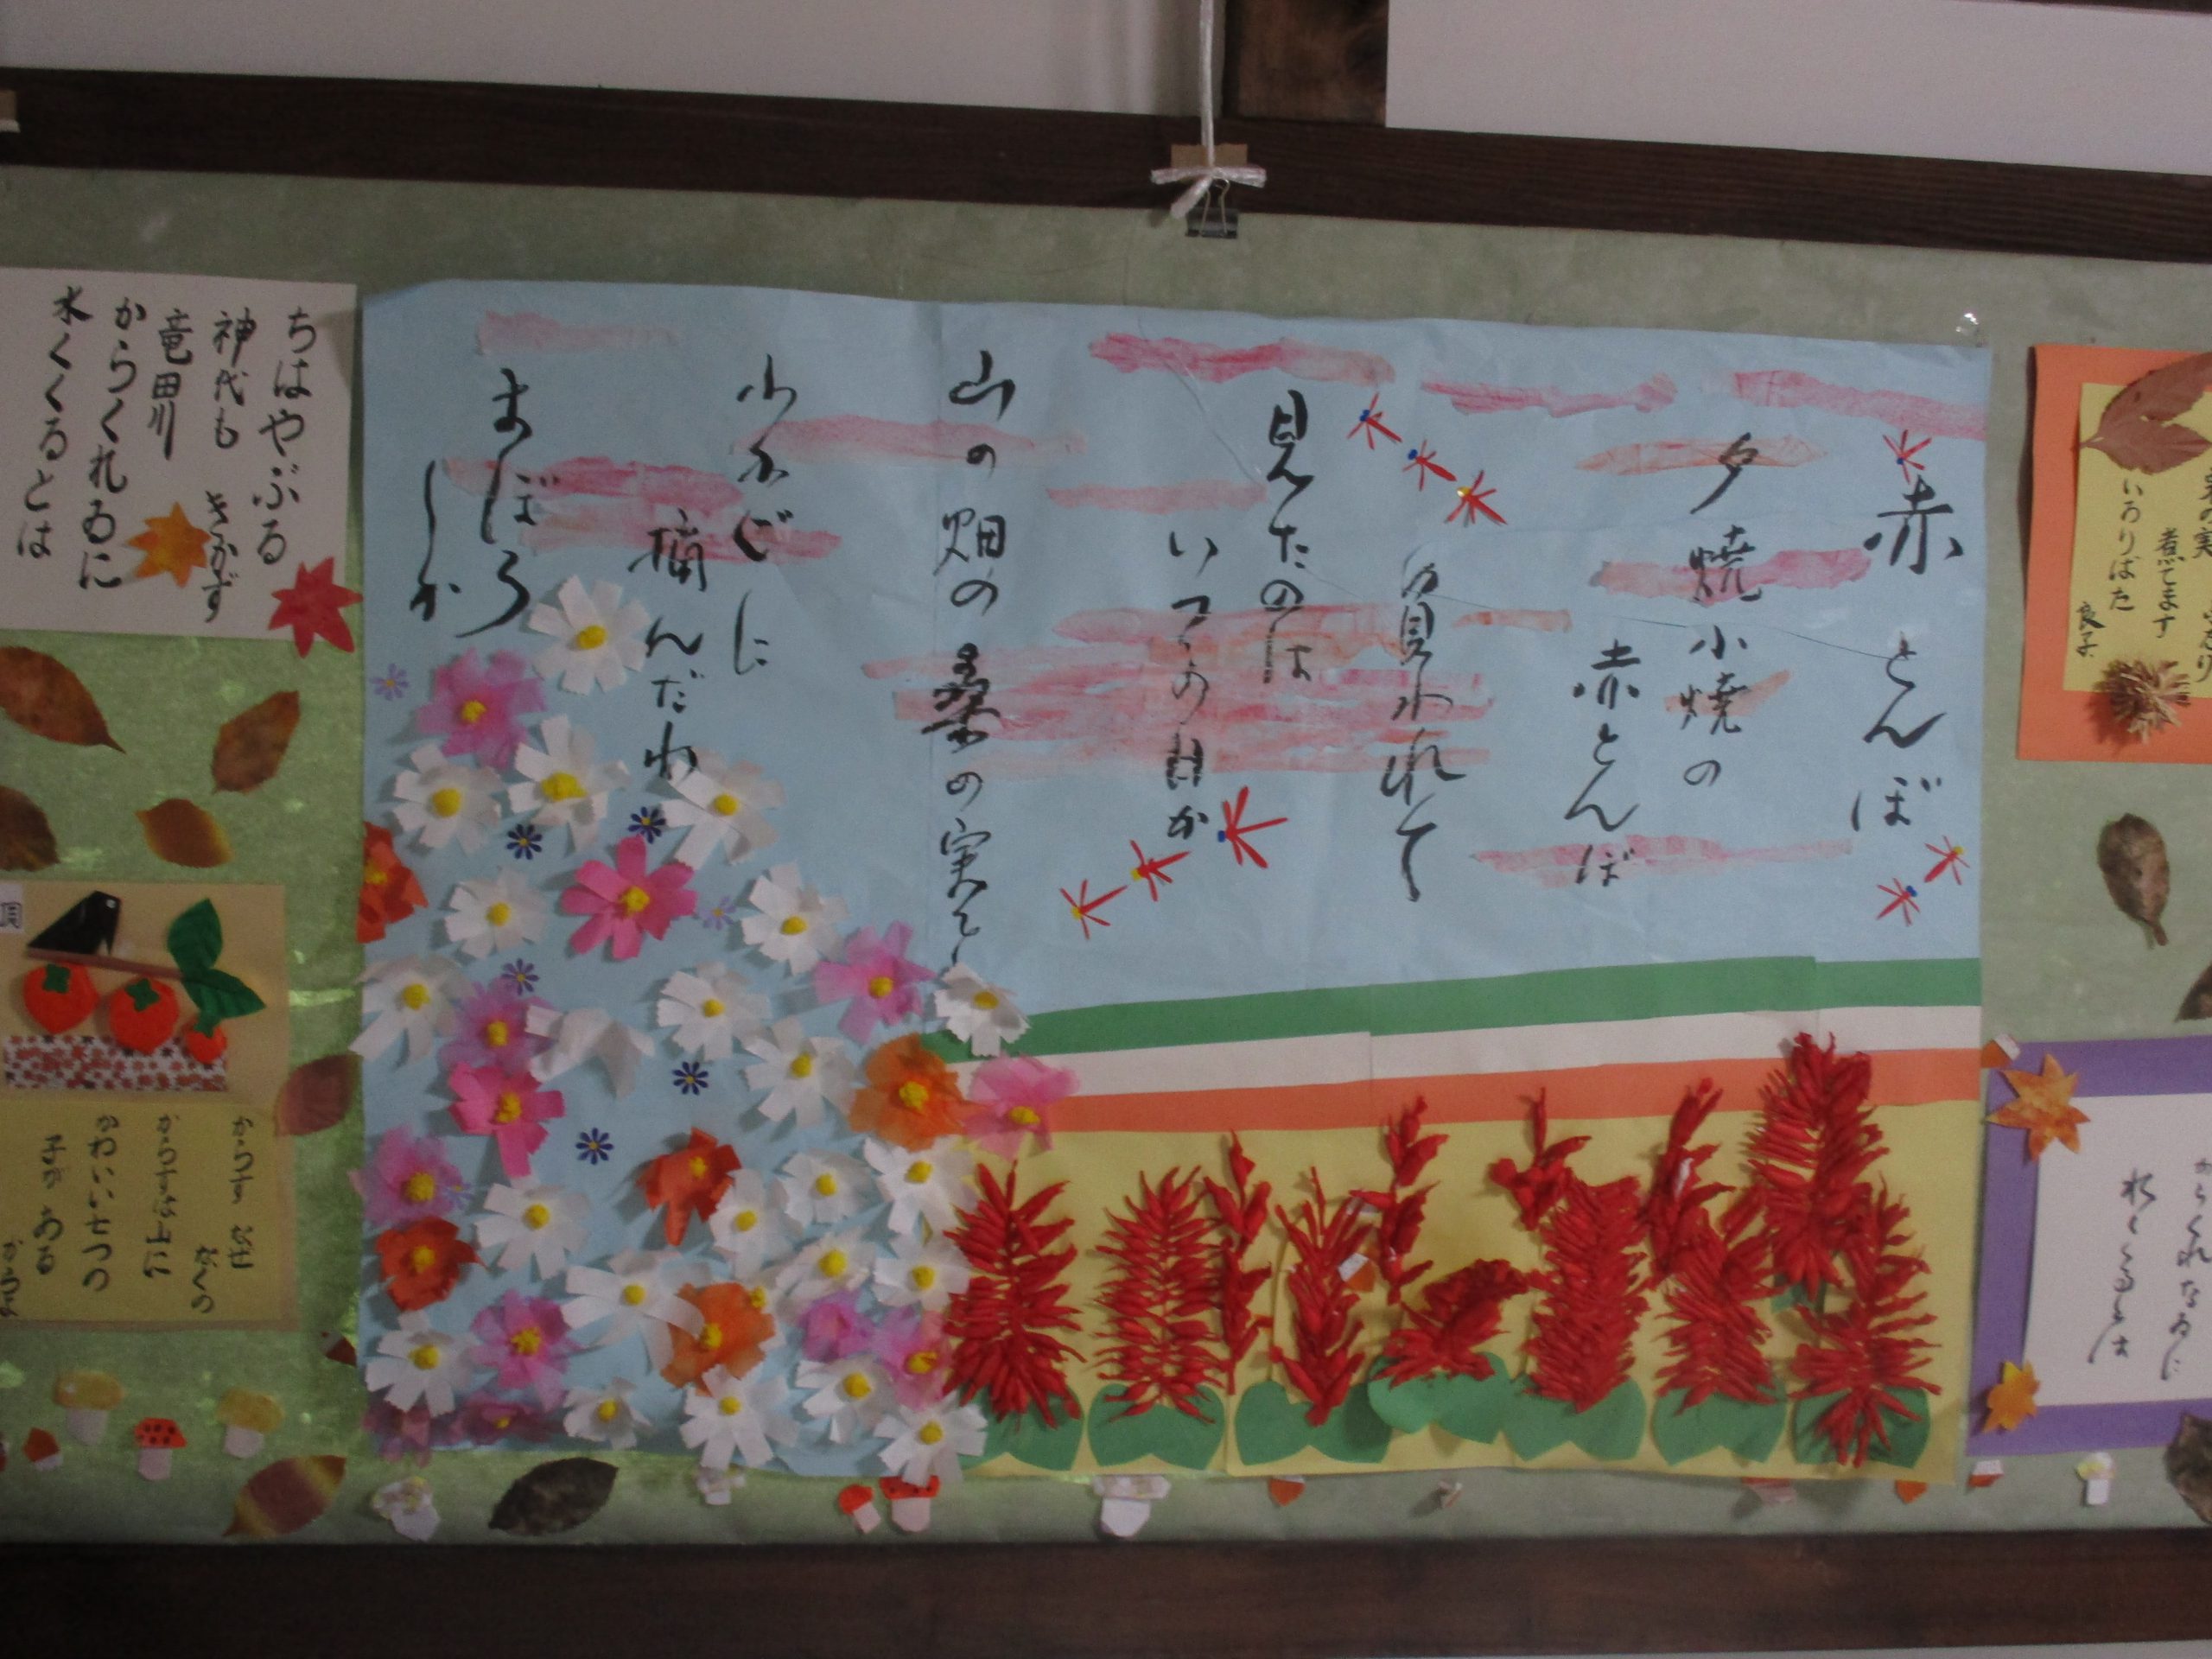 赤とんぼ
夕焼小焼の
赤とんぼ
負われて
見たのは
いつの日か
山の畑の桑の実を
小かごに
摘んだわ
まぼろ
しか
ちはやぶる
神代も きかず
竜田川
からくれゐに
水くくるとは
からす なぜ
なくの
からすは山に
かわいい七つの
子が ある
からす
の実
煮てます
いろりばた
良子
からくれなゐに
水くくるとは